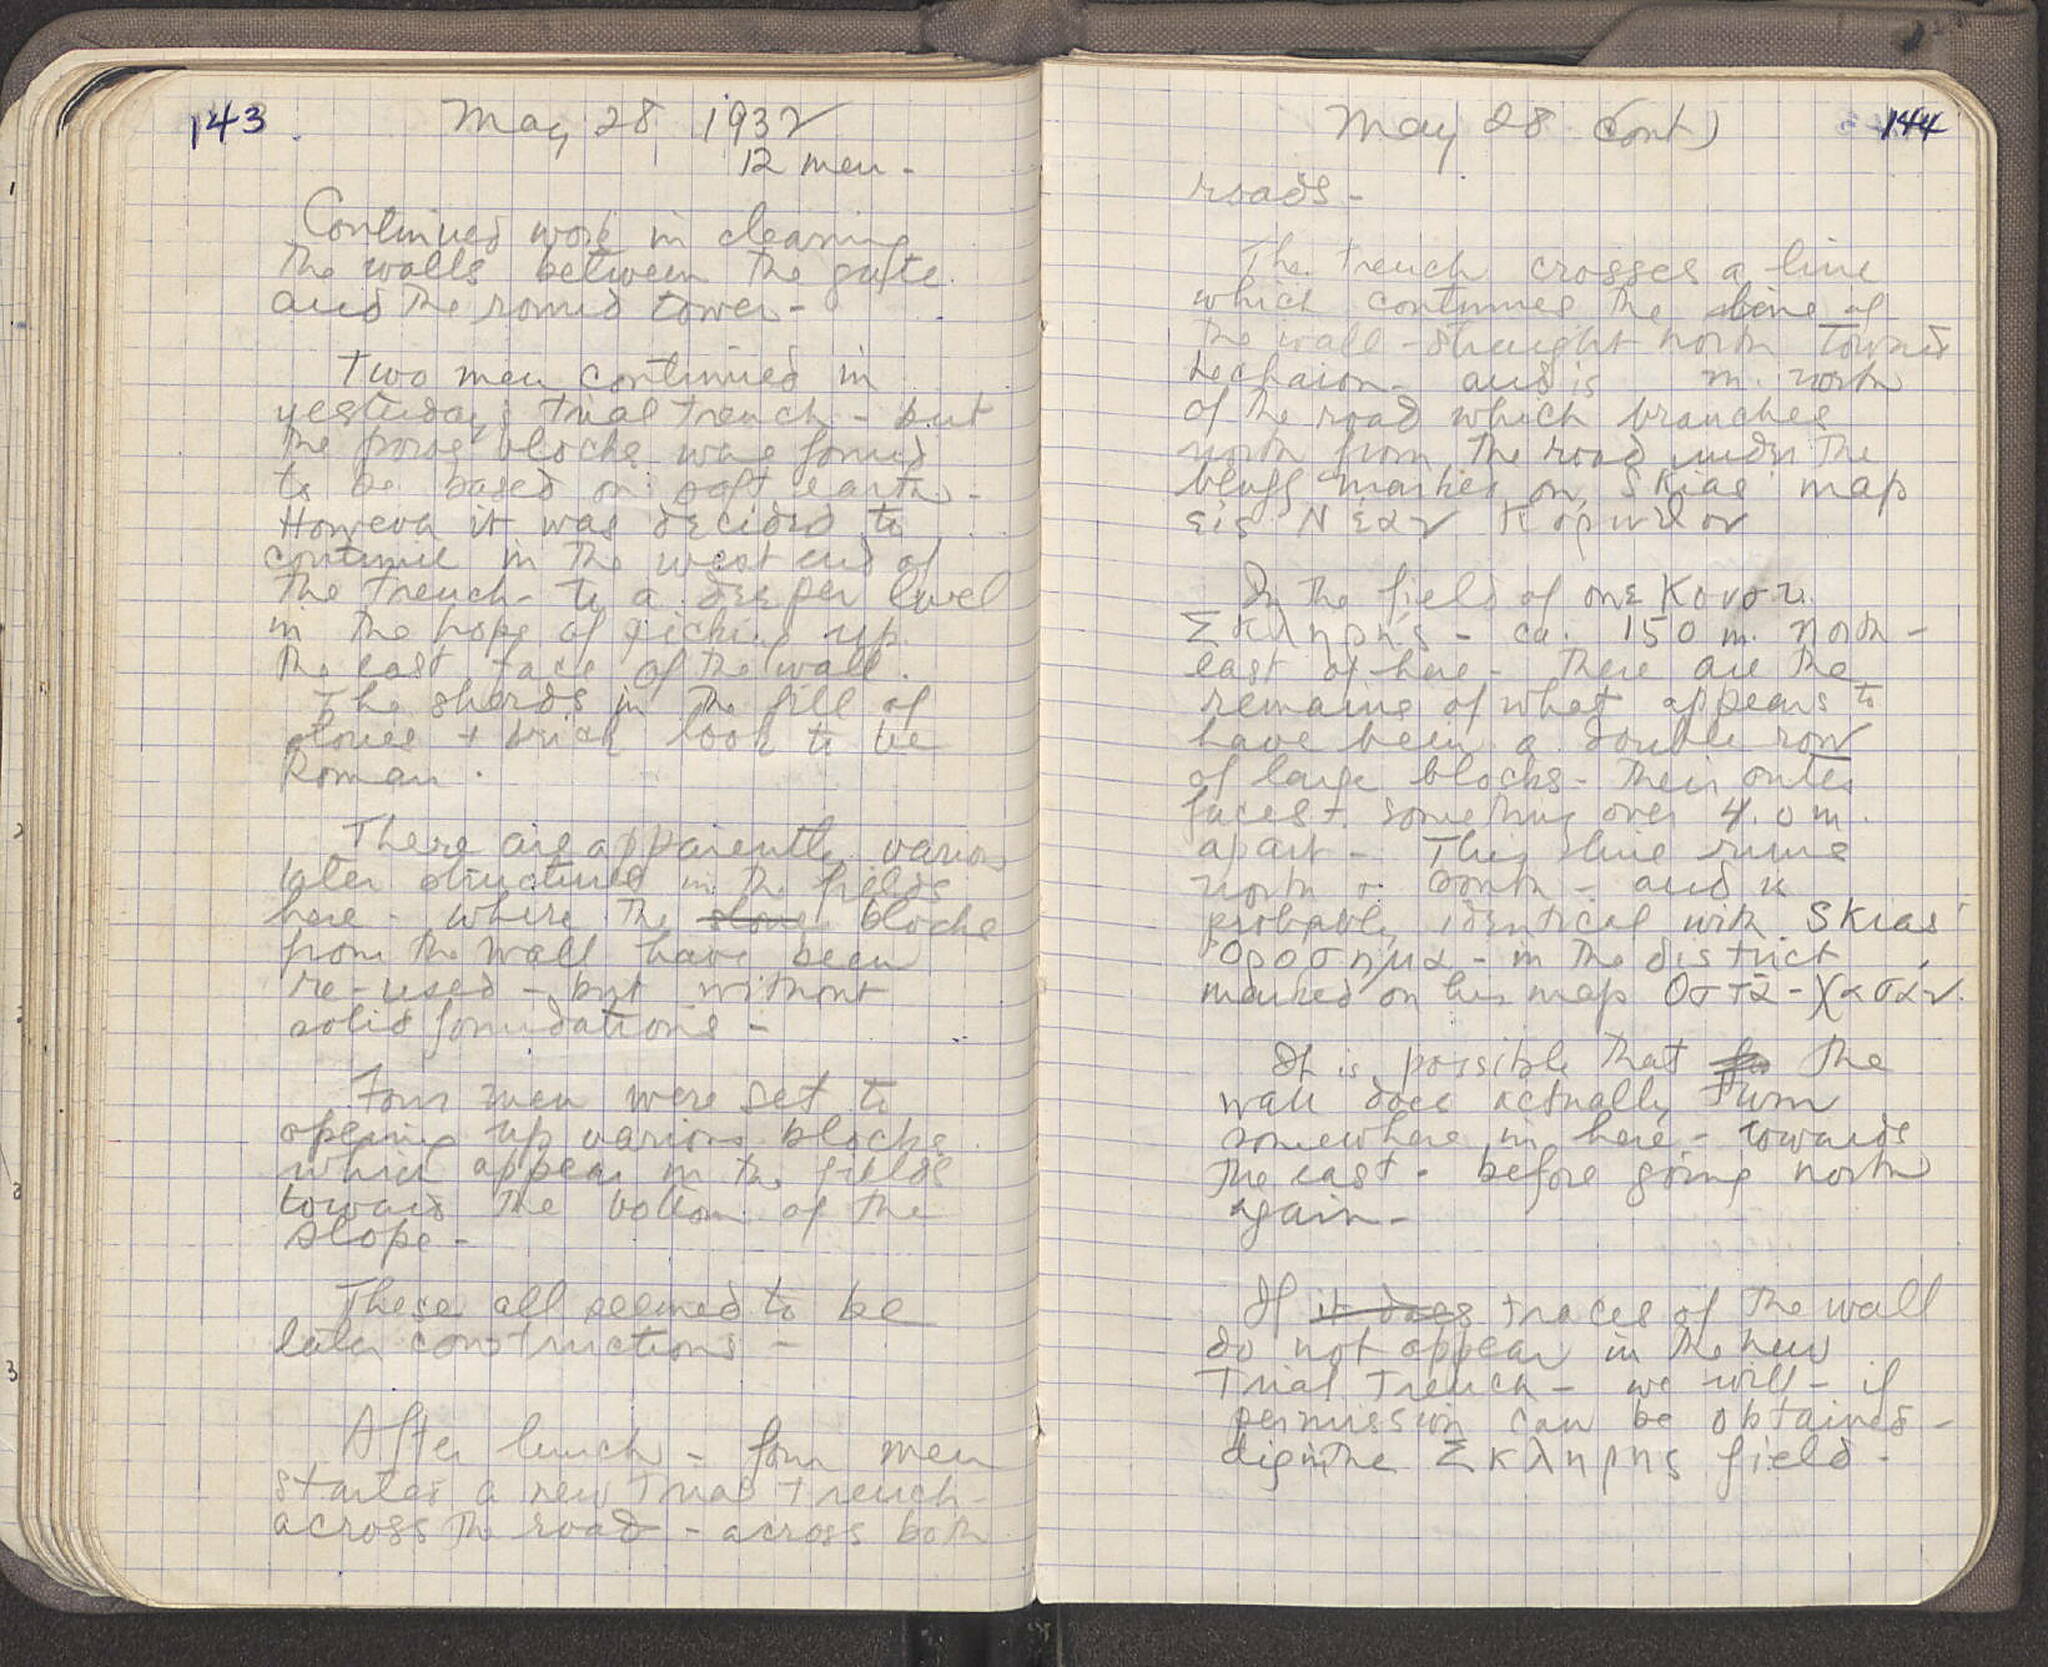 143
May 28 1932
12 men -
Continued work in cleaning
the walls between the gate
and the round tower -
Two men continued in
yesterday's trial trench - but
the poros blocks were found
to be based on soft earth -
However it was decided to
continue in the west end of
the trench - to a deeper level
in the hope of picking up
the east face of the wall.
The sherds in the fill of
stones + brick look to be
Roman.
There are apparently various
later structures in the fields
here - where the stone blocks
from the wall have been
re-used - but without
solid foundations -
Four men were set to
opening up various blocks
which appear in the fields
toward the bottom of the
slope -
These all seemed to be
later constructions -
After lunch - four men
started a new trial trench -
across the road - across both
May 28 (cont)
144
roads -
The trench crosses a line
which continues the line of
the wall - straight north toward
Lechaion - and is m. north
of the road which branches
north from the road under the
bluff marked on Skias' map
εἰς Νέαν Κόρινθον
In the field of one
Σκληρής - ca. 150 m. north -
east of here - there are the
remains of what appears to
have been a double row
of large blocks - their outer
faces + something over 4.0 m.
apart - This line runs
north + south - and is
probably identical with Skias'
Ὁροσημα - in the district
marked on his map Οστα-Χασάν.
It is possible that the
wall does actually turn
somewhere in here - towards
the east - before going north
again -
If it does traces of the wall
do not appear in the new
trial trench - we will - if
permission can be obtained -
dig in the Σκληρης field -